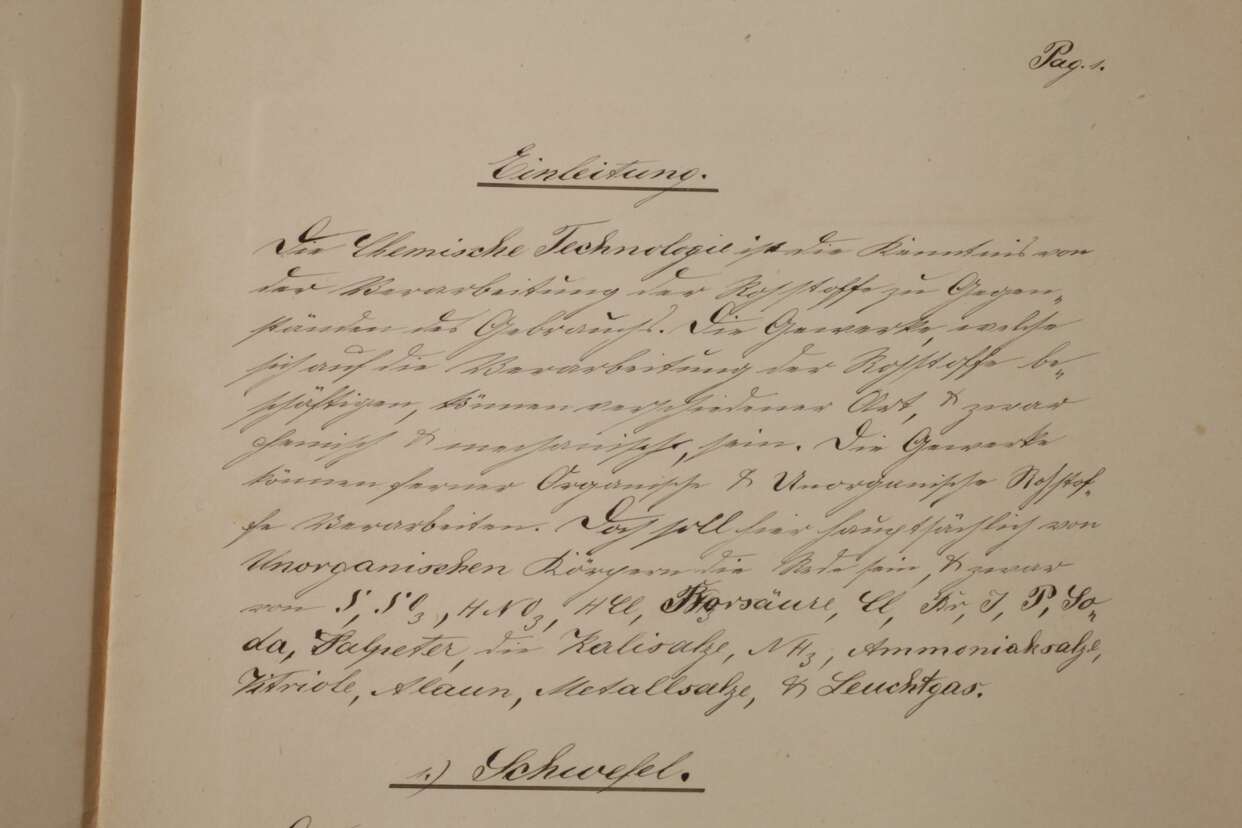 Pag. 1.
Einleitung.
Die Chemische Technologie ist die Kenntnis von
der Verarbeitung der Rohstoffe zu Gegen„
ständen des Gebrauchs. Die Gewerke, welche
sich auf die Verarbeitung der Rohstoffe be„
schäftigen, können verschiedener Art, & zwar
chemisch & mechanische, sein. Die Gewerke
können ferner Organische & Unorganische Rohstof„
fe Verarbeiten. Doch soll hier hauptsächlich von
Unorganischen Körpern die Rede sein, & zwar
von S, SO3, HNO3, HCl, Borsäure, Cl, Br, J, P, So„
da, Salpeter, die Kalisalze, NH3, Ammoniaksalze,
Vitriole, Alaun, Metallsalze, & Leuchtgas.
1.) Schwefel.